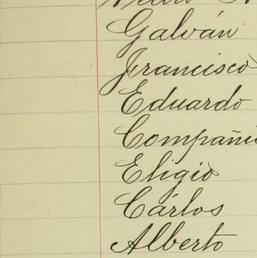 Galván
Francisco
Eduardo
Eligio
Cárlos
Alberto